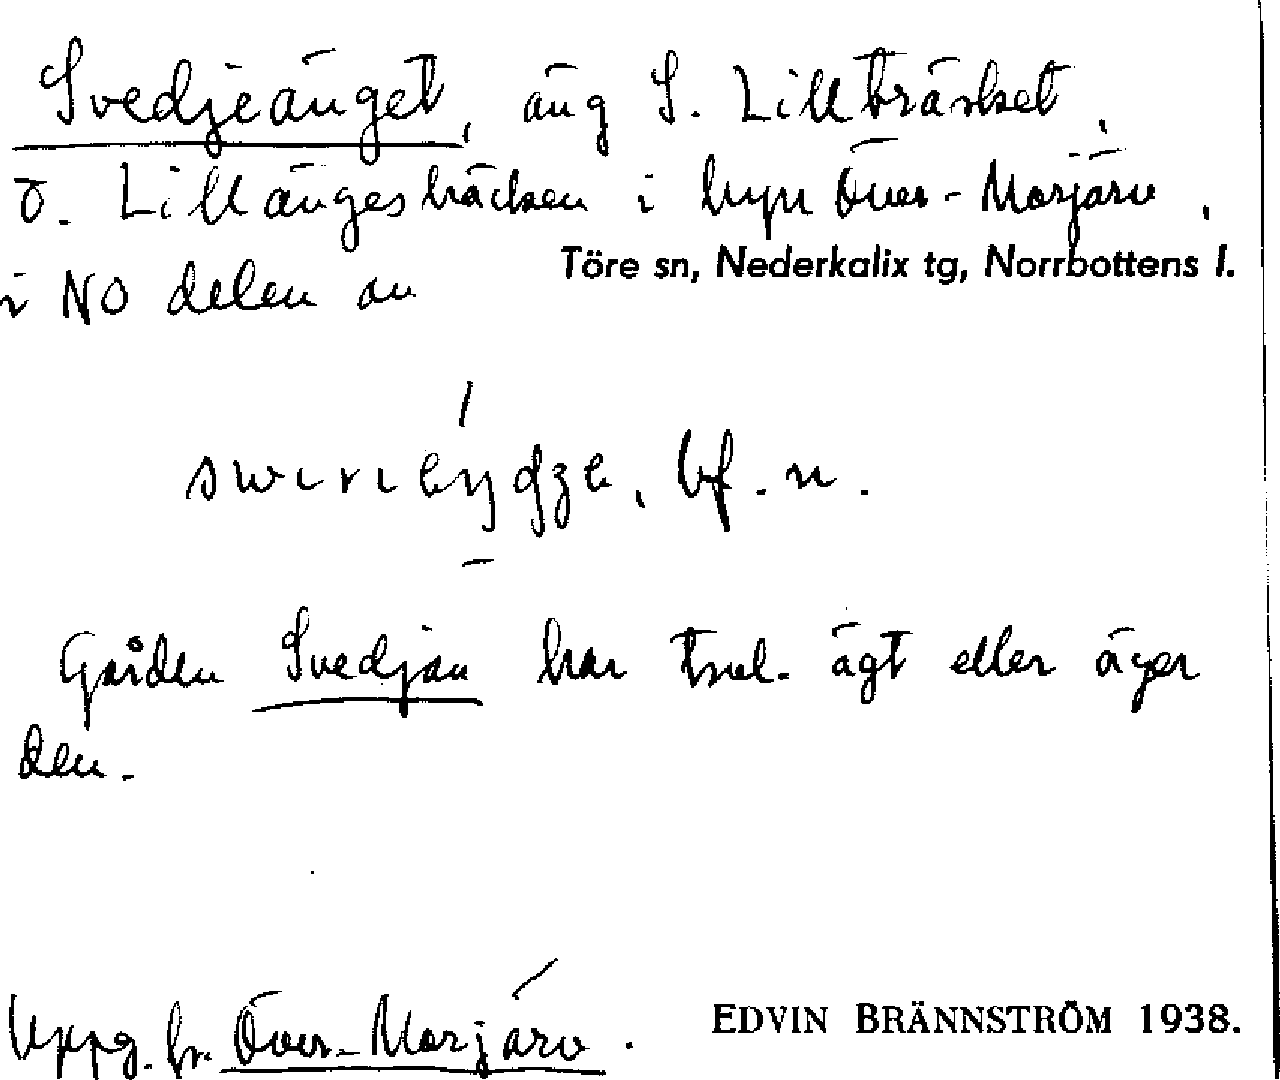 Svedjeänget, äng S. Lillträsket,
ö. Lillängesbäcken i byn Över-Morjärv,
Töre sn, Nederkalix tg, Norrbottens l.
i NO delen av
bf. n.
Gården Svedjan har trol. ägt eller äger
den.
Uppg. fr. Över-Morjärv.
EDVIN BRÄNNSTRÖM 1938.